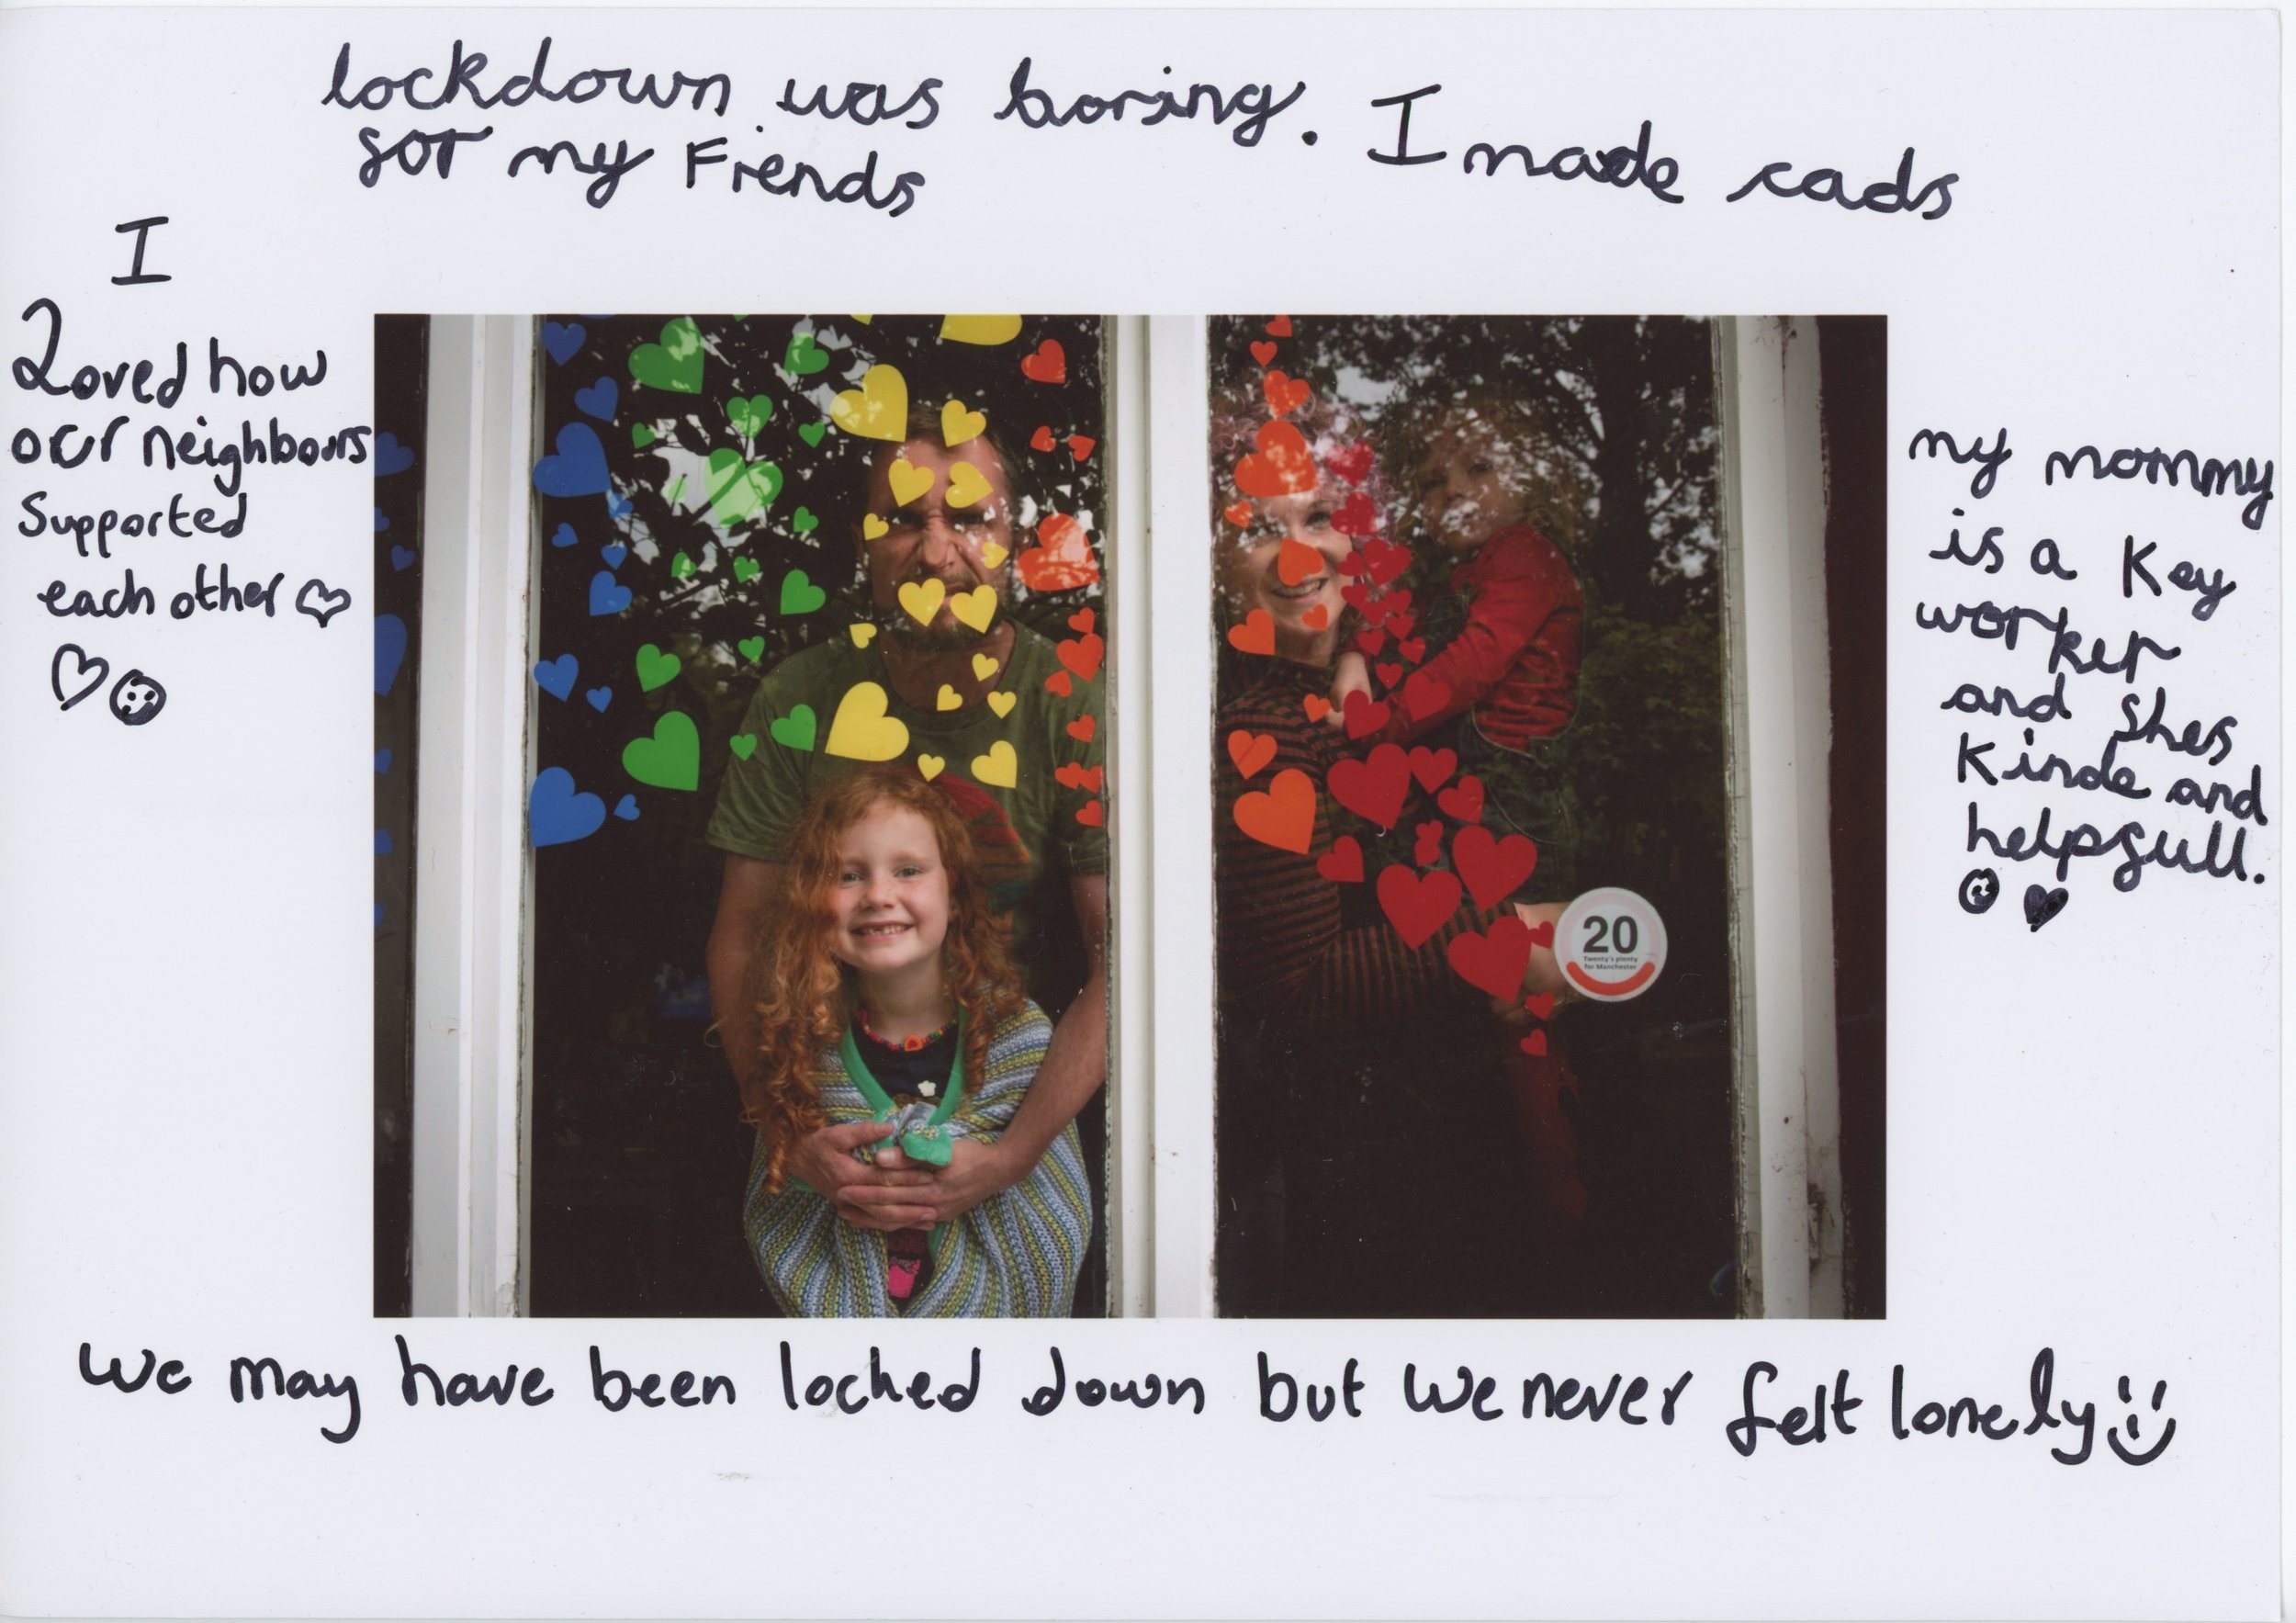 lockdown was boring. I made cads
for my Fiends
I
Loved how
our neighbours
Supported
each other
my mommy
is a Key
worker
and Shes
Kinde and
helpfull.
20
Twenty's plenty
for Manchester
We may have been locked down but we never felt lonely